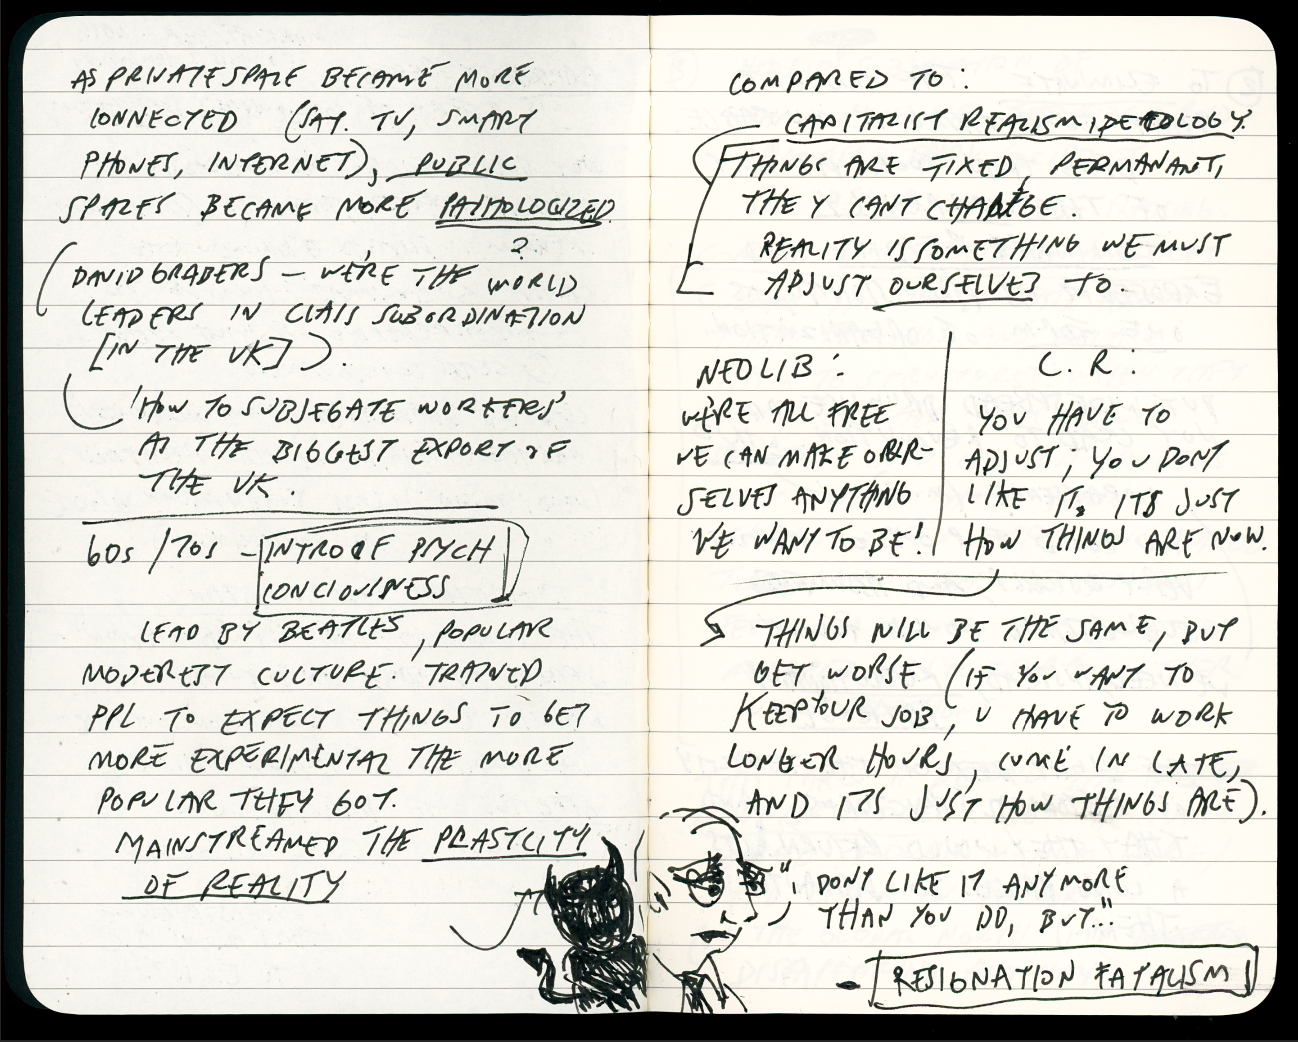 AS PRIVATE SPACE BECAME MORE
CONNECTED (SAY. TV, SMART
PHONES, INTERNET), PUBLIC
SPACES BECAME MORE PATHOLOGIZED.
?
DAVID GRABERS – WE'RE THE WORLD
LEADERS IN CLASS SUBORDINATION
[IN THE UK]).
'HOW TO SUBJEGATE WORKERS'
AS THE BIGGEST EXPORT OF
THE UK.
60s / 70s – INTRO OF PSYCH
CONCIOUSNESS
LEAD BY BEATLES, POPULAR
MODEREST CULTURE. TRAINED
PPL TO EXPECT THINGS TO GET
MORE EXPERIMENTAL THE MORE
POPULAR THEY GOT.
MAINSTREAMED THE PLASTCITY
OF REALITY
COMPARED TO:
CAPITALIST REALISM IDEOLOGY.
THINGS ARE FIXED, PERMANANT,
THEY CANT CHANGE.
REALITY IS SOMETHING WE MUST
ADJUST OURSELVES TO.
NEOLIB:
WE'RE ALL FREE
WE CAN MAKE OUR-
SELVES ANYTHING
WE WANT TO BE!
C. R:
YOU HAVE TO
ADJUST; YOU DONT
LIKE IT, ITS JUST
HOW THINGS ARE NOW.
THINGS WILL BE THE SAME, BUT
GET WORSE (IF YOU WANT TO
KEEP YOUR JOB, U HAVE TO WORK
LONGER HOURS, COME IN LATE,
AND ITS JUST HOW THINGS ARE).
"I DONT LIKE IT ANYMORE
THAN YOU DO, BUT..."
– RESIGNATION FATALISM